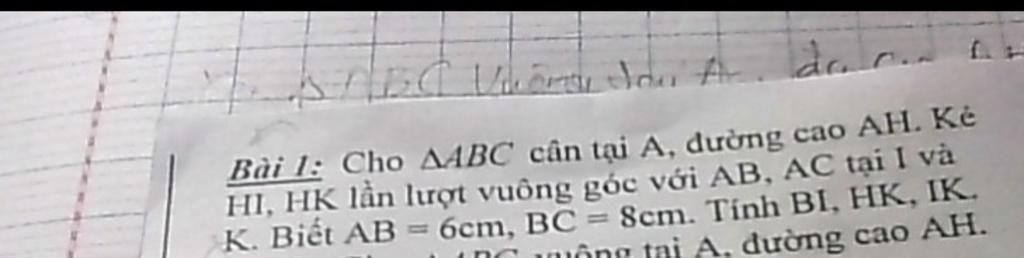 ABC Vuông tại A.
Bài 1: Cho ΔABC cân tại A, đường cao AH. Kẻ
HI, HK lần lượt vuông góc với AB, AC tại I và
K. Biết AB = 6cm, BC = 8cm. Tính BI, HK, IK.
vuông tại A, đường cao AH.